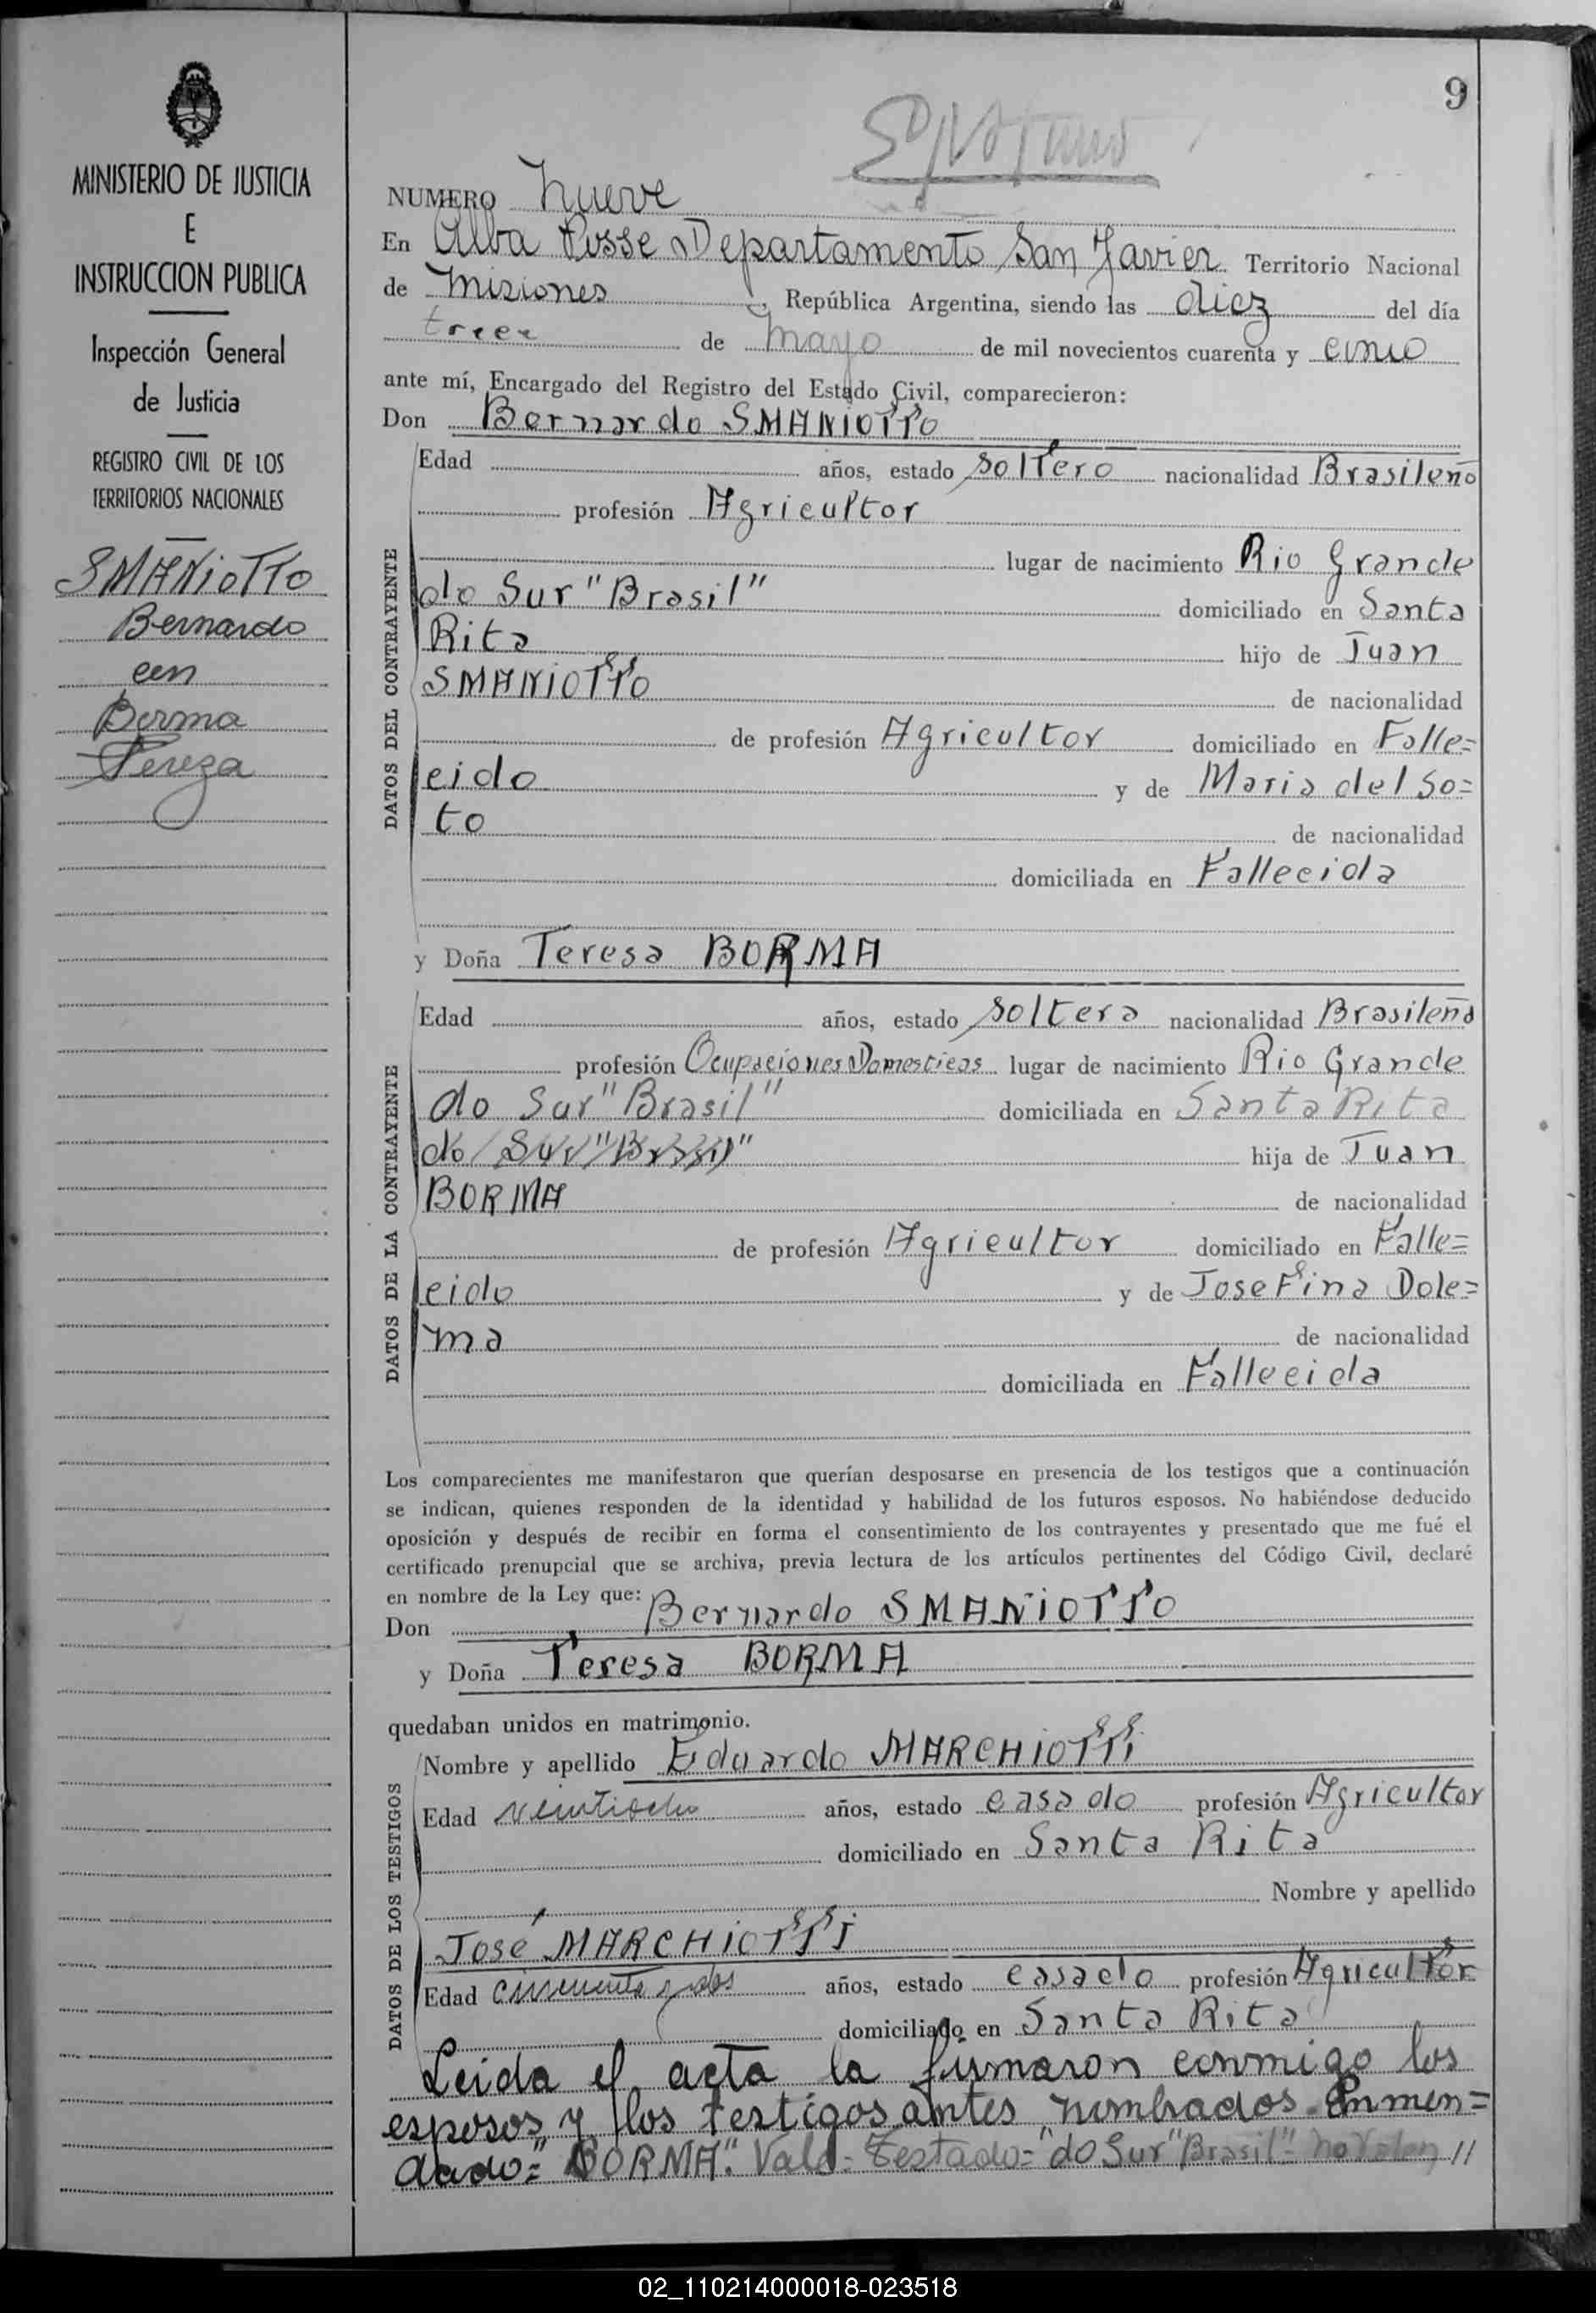 9
MINISTERIO DE JUSTICIA
E
INSTRUCCION PUBLICA
Inspección General
de Justicia
REGISTRO CIVIL DE LOS
TERRITORIOS NACIONALES
SMANIOTTO
Bernardo
con
Borma
Tereza
NUMERO Nueve
En Alba Posse Departamento San Javier Territorio Nacional
de Misiones, República Argentina, siendo las diez del día
trece de mayo de mil novecientos cuarenta y cinco
ante mí, Encargado del Registro del Estado Civil, comparecieron:
Don Bernardo SMANIOTTO
DATOS DEL CONTRAYENTE
Edad años, estado soltero nacionalidad Brasileño
profesión Agricultor
lugar de nacimiento Rio Grande
do Sur "Brasil" domiciliado en Santa
Rita hijo de Juan
SMANIOTTO de nacionalidad
de profesión Agricultor domiciliado en Falle=
cido y de Maria del So=
to de nacionalidad
domiciliada en Fallecida
y Doña Teresa BORMA
DATOS DE LA CONTRAYENTE
Edad años, estado soltera nacionalidad Brasileña
profesión Ocupaciones Domesticas lugar de nacimiento Rio Grande
do Sur "Brasil" domiciliada en Santa Rita
do Sur "Brasil" hija de Juan
BORMA de nacionalidad
de profesión Agricultor domiciliado en Falle=
cido y de Josefina Dole=
ma de nacionalidad
domiciliada en Fallecida
Los comparecientes me manifestaron que querían desposarse en presencia de los testigos que a continuación
se indican, quienes responden de la identidad y habilidad de los futuros esposos. No habiéndose deducido
oposición y después de recibir en forma el consentimiento de los contrayentes y presentado que me fué el
certificado prenupcial que se archiva, previa lectura de los artículos pertinentes del Código Civil, declaré
en nombre de la Ley que:
Don Bernardo SMANIOTTO
y Doña Teresa BORMA
quedaban unidos en matrimonio.
DATOS DE LOS TESTIGOS
Nombre y apellido Eduardo MARCHIOTTI
Edad veintiocho años, estado casado profesión Agricultor
domiciliado en Santa Rita
Nombre y apellido
José MARCHIOTTI
Edad cincuenta y dos años, estado casado profesión Agricultor
domiciliado en Santa Rita
Leida el acta la firmaron conmigo los
esposos y los testigos antes nombrados. Enmen=
dado= "BORMA". Vale= Testado= "do Sur "Brasil"= no valen //
02_110214000018-023518